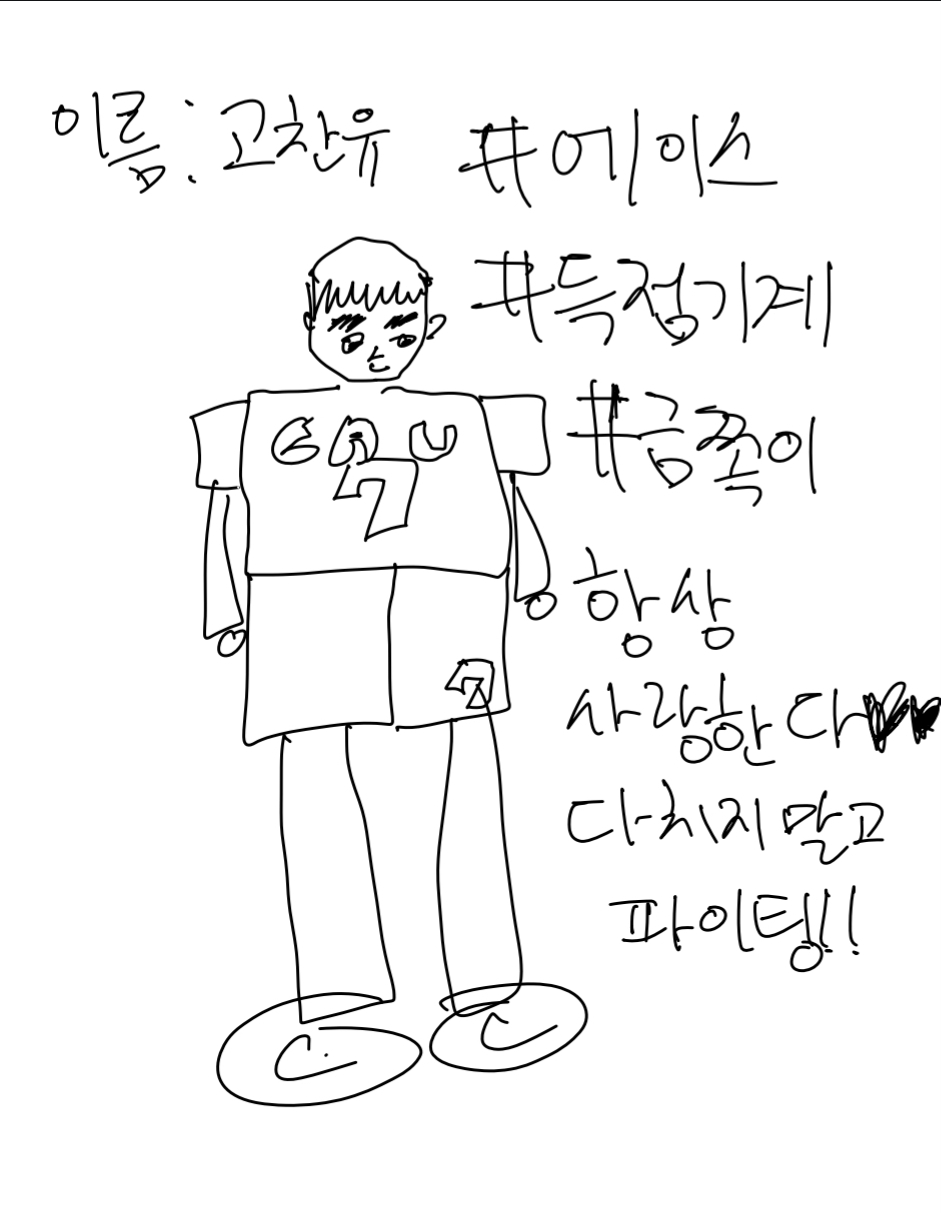 이름: 고찬유 #에이스
#득점기계
#금쪽이
GNU
7
항상
사랑한다♥♥
7
다치지 말고
파이팅!!